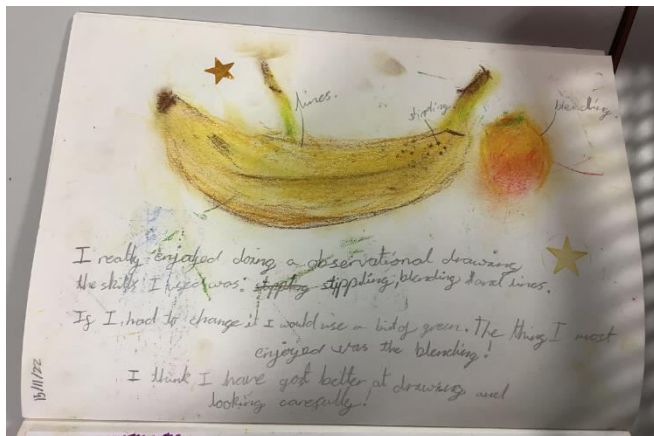 lines.
stippling
blending
I really enjoyed doing a observational drawing
the skills I used was: stippling, blending and lines.
If I had to change it I would use a bit of green. The thing I most
enjoyed was the blending!
I think I have got better at drawing and
looking carefully!
15/11/22